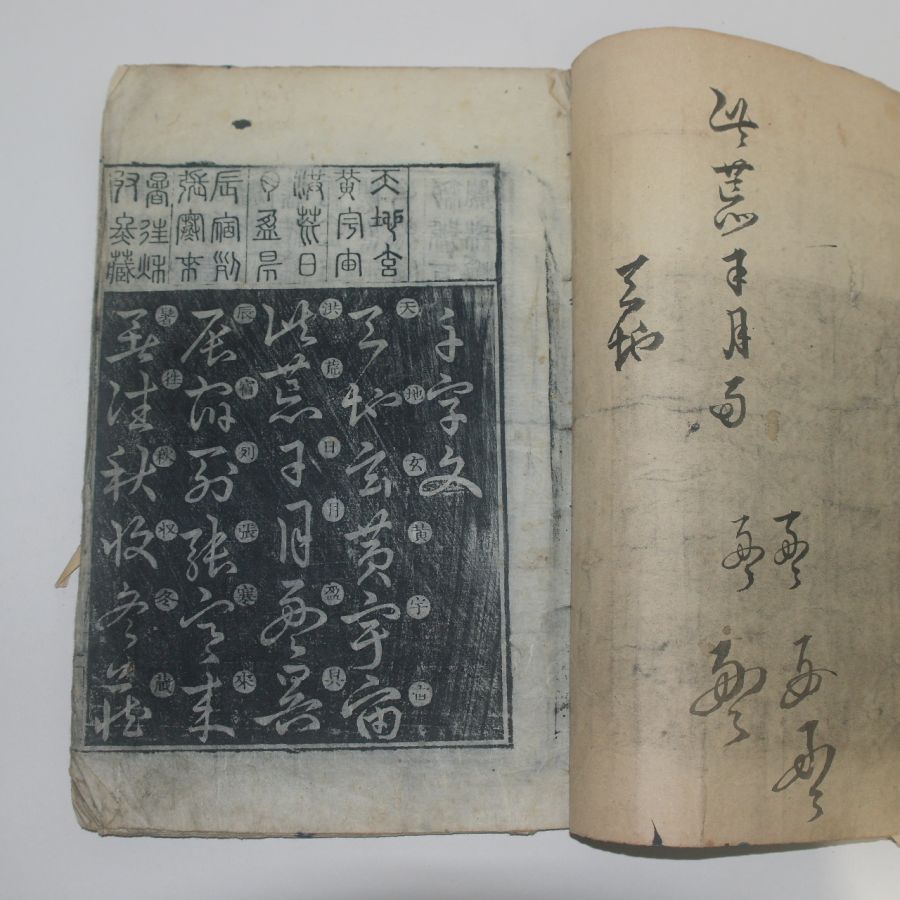 洪荒日月
天地
天地玄
黃宇宙
洪荒日
月盈昃
辰宿列
張寒來
暑往秋
收冬藏
千字文
天地玄黃宇宙
天地玄黃宇宙
洪荒日月盈昃
洪荒日月盈昃
辰宿列張寒來
辰宿列張寒來
暑往秋收冬藏
暑往秋收冬藏